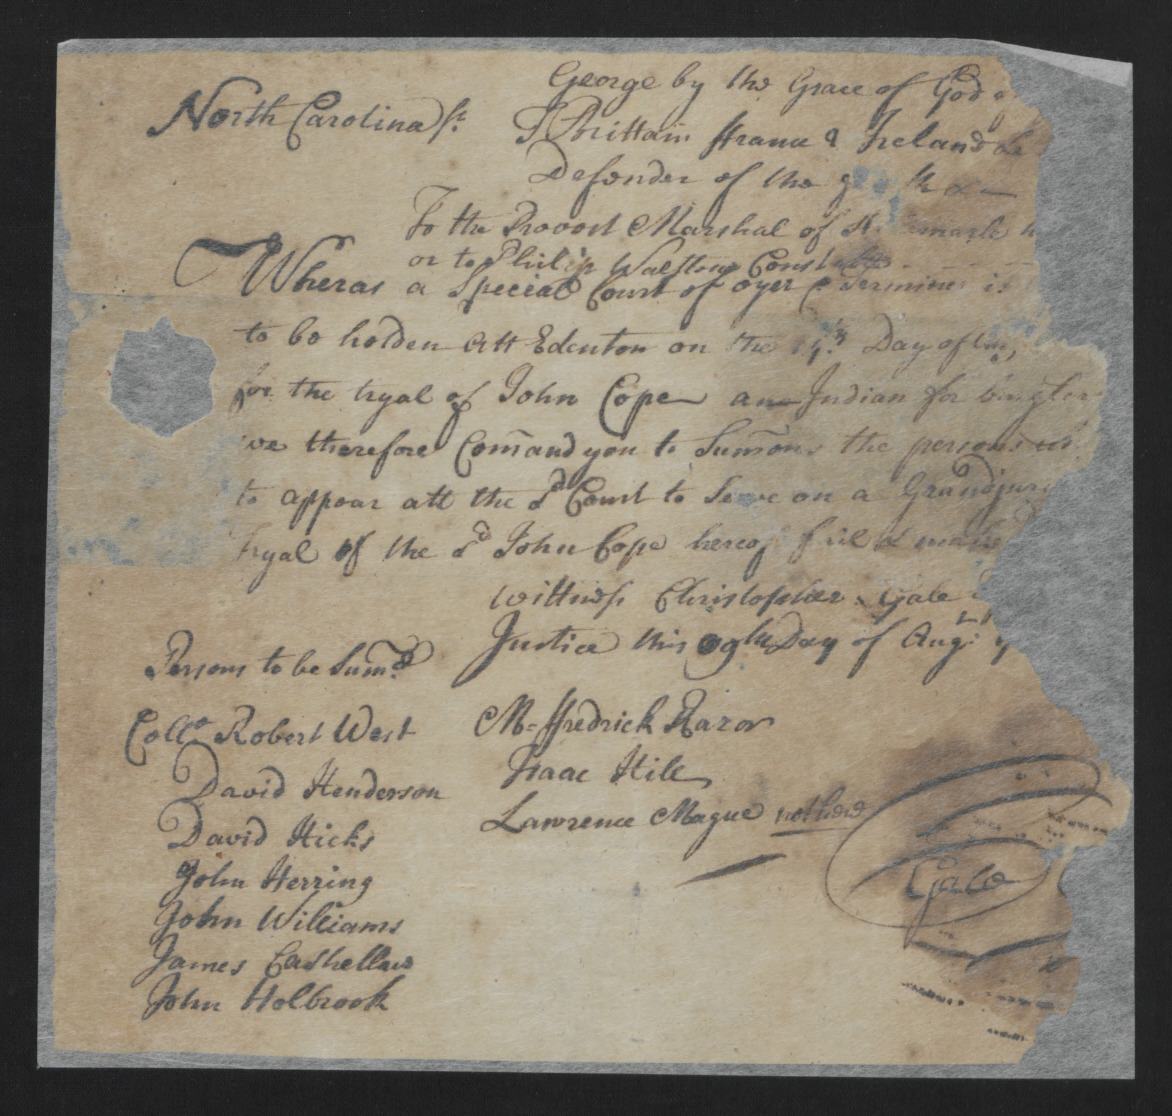 North Carolina ss.
George by the Grace of God o
G Brittain ffrance & Ireland
Defender of the
To the Provost Marshal of
or to Philip Walston Const
Wheras a Special Court of oyer & Terminer is
to be holden Att Edenton on the Day of
for the tryal of John Cope an Indian for
we therefore Com̄and you to Sum̄ons the persons
to appear att the sd Court to Serve on a Grandjury
tryal of the sd John Cope hereof fail
Wittness Christopher Gale
Justice this Day of Augt
Persons to be Sum̄d
Collo Robert West
David Henderson
David Hicks
John Herring
John Williams
James Castellaw
John Holbrook
Mr ffredrick Razor
Isaac Hill
Lawrence Mague
CGale